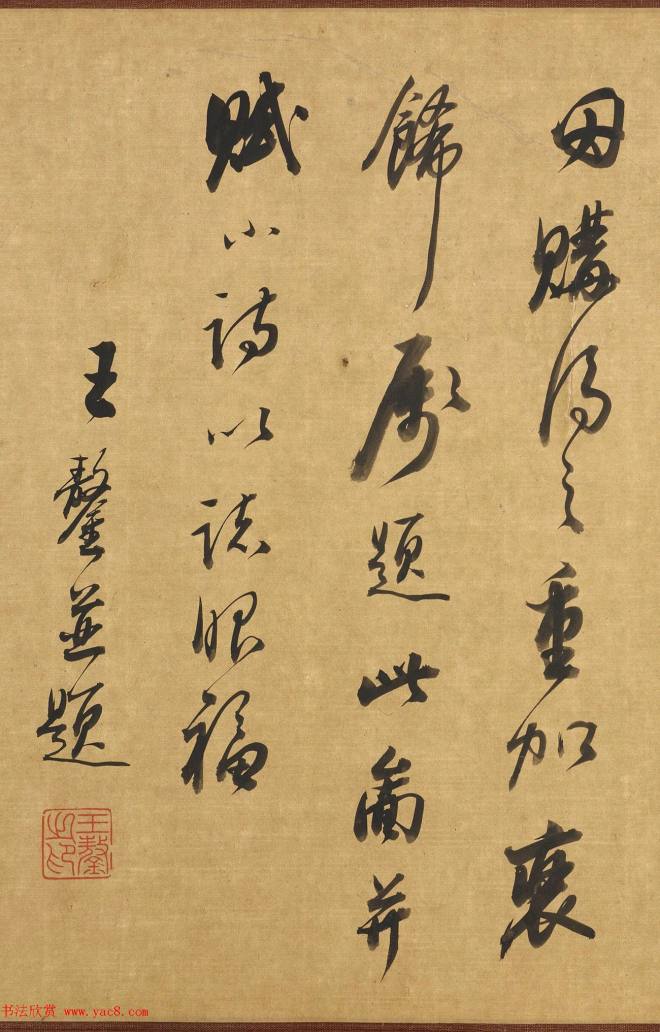 因購得之重加裹
飾屬題此圖并
賦小詩以誌眼福
王鏊並題
王鏊之印
书法欣赏 www.yac8.com